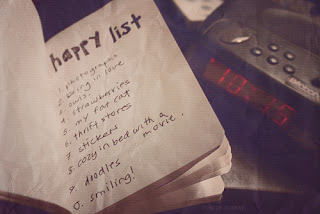 happy list
1. photographs
2. being in love
3. owls.
4. strawberries
5. my fat cat
6. thrift stores
7. stickers
8. cozy in bed with a
movie.
9. doodles
0. smiling!